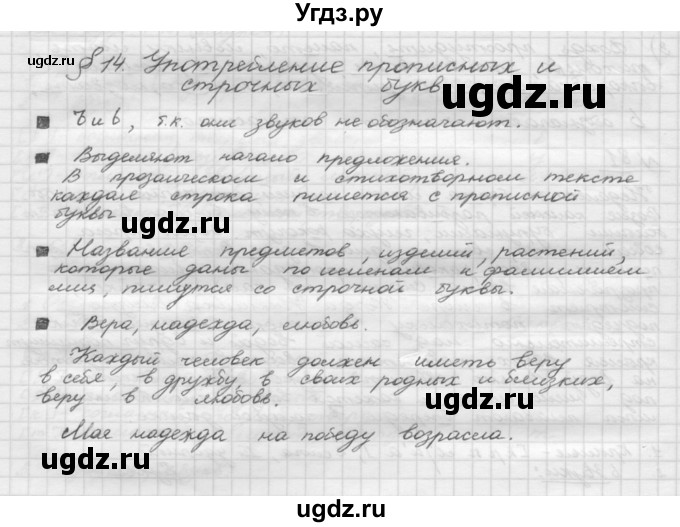 Угдз.ру
§ 14. Употребление прописных и
строчных букв
Ъ и Ь, т.к. они звуков не обозначают.
Выделяют начало предложения.
В прозаическом и стихотворном тексте
каждая строка пишется с прописной
буквы
Названия предметов, изделий, растений,
которые даны по именам и фамилиям
лиц, пишутся со строчной буквы.
Вера, надежда, любовь.
Каждый человек должен иметь веру
в себя, в дружбу, в своих родных и близких,
веру в любовь.
Моя надежда на победу возрасла.
ugdz.ru
ugdz.ru
ugdz.ru
ugdz.ru
ugdz.ru
ugdz.ru
ugdz.ru
ugdz.ru